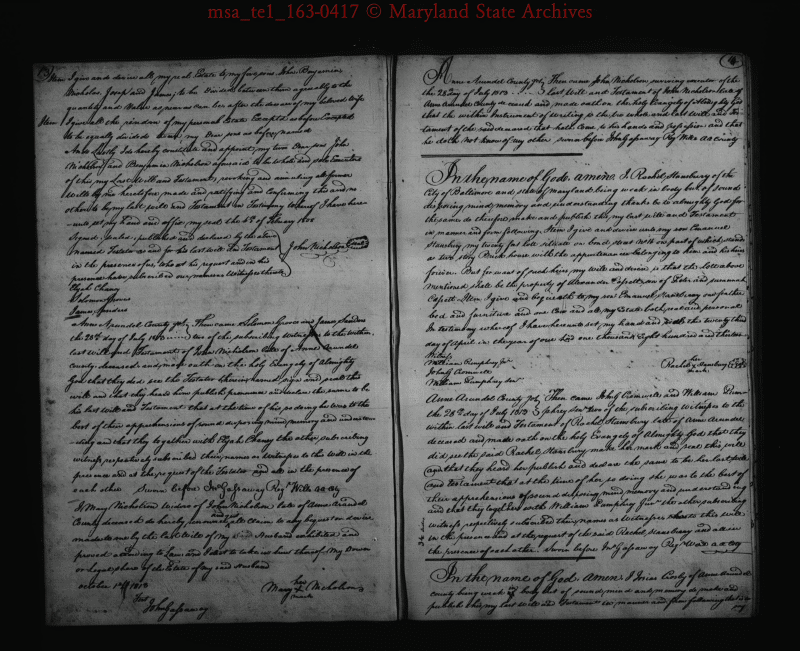 msa_te1_163-0417 © Maryland State Archives
Item I give and devise all my real Estate to my five sons John, Benjamin
Nicholas, Joseph and James, to be Divided between them agreeable to the
quantity and Value as near as can be after the decease of my beloved wife
Item I give all the residue of my personal Estate Excepted as before Excepted
to be equally divided
And Lastly I do hereby constitute and appoint my two sons John
Nicholson and Benjamin Nicholson aforesaid to be whole and sole Executors
of this my Last Will and Testament, revoking and annulling all former
Wills by me heretofore made and ratifying and Confirming this and no
other to be my last will and Testament in Testimony whereof I have here-
unto set my hand and affix my seal the 4th of February 18
Signed, sealed, published and declared by the above
named Testator as and for his last will and Testament
in the presence of us who at his request and in his
presence have subscribed our names as Witnesses thereto
John Nicholson Seal
Elijah Chaney
Solomon Groves
James Sanders
Anne Arundel County Then came Solomon Groves and James Sanders
the 28th day of July 1813 two of the subscribing Witnesses to the within
last will and Testament of John Nicholson late of Anne Arundel
County deceased and made oath on the holy Evangely of Almighty
God that they did see the Testator therein named sign and seal this
will and that they heard him publish pronounce and declare the same to be
his last Will and Testament that at the time of his so doing he was to the
best of their apprehensions of sound disposing mind memory and understan-
ding and that they together with Elijah Chaney the other subscribing
witness, respectively subscribed their names as witnesses to this will in the
presence and at the request of the Testator and all in the presence of
each other Sworn before Jn Gassaway Regr Wills AA Cty
I Mary Nicholson Widow of John Nicholson late of Anne Arundel
County deceased do hereby renounce all Claim to any bequest or devise
made to me by the last Will of my said Husband exhibited and
proved according to Law and I elect to take in lieu thereof My Dower
or legal share of the Estate of my said Husband
October 1813
Mary her mark Nicholson
Test
John Gassaway
Anne Arundel County Then came John Nicholson surviving executor of the
the 28 day of July 1813 last Will and Testament of John Nicholson late of
Anne Arundel County deceased and made oath on the holy Evangely of Almighty God
that the within Instrument of writing is the true whole and last will and Tes-
tament of the said deceased that hath Come to his hands and possession and that
he doth not know of any other sworn before John Gassaway Reg Wills AA County
In the name of God, amen. I Rachel Stansbury of the
City of Baltimore and state of Maryland being weak in body but of sound
disposing mind, memory and understanding thanks be to almighty God for
the same do therefore make and publish this my last will and Testament
in manner and form following. Item I give and devise unto my son Emanuel
Stansbury my twenty foot lot situate on Bond street No 16 on part of which stands
a two story Brick house with the appurtenances belonging to him and his heirs
forever. But for want of such heirs, my will and desire is that the lot above
mentioned shall be the property of Alexander Cassett, son of John
Cassett. Item I give and bequeath to my son Emanuel Stansbury one feather
bed and furniture and one Cow and all my Estate both real and personal
In testimony whereof I have hereunto set my hand and seal the twenty third
day of April in the year of our Lord one thousand Eight hundred and thirteen
Witness
William Pumphrey Jr
John Cromwell
William Pumphrey Senr
Rachel her mark Stansbury Seal
Anne Arundel County Then Came John Cromwell and William Pum-
the 28th day of July 1813 phrey Senr two of the subscribing Witnesses to the
within last will and Testament of Rachel Stansbury late of Anne Arundel
deceased and made oath on the holy Evangely of Almighty God that they
did see the said Rachel Stansbury make her mark and seal this will
and that they heard her publish and declare the same to be her last will
and Testament that at the time of her so doing she was to the best of
their apprehensions of sound disposing mind, memory and understanding
and that they together with William Pumphrey Junr the other subscribing
witness, respectively subscribed their names as Witnesses to this will
in the presence and at the request of the said Rachel Stansbury and all in
the presence of each other. Sworn before Jn Gassaway Regr Wills AA Cty
In the name of God. Amen I of Anne Arundel
County being weak in body but of sound mind and memory do make and
publish this my last will and Testament in manner and form following that is to